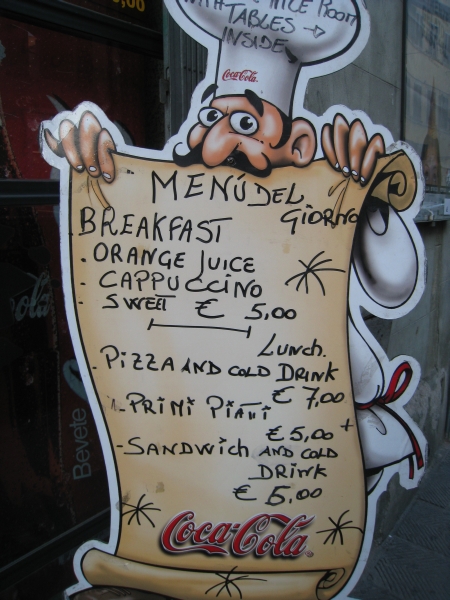 NICE ROOM
WITH TABLES →
INSIDE
Coca-Cola
MENÚ DEL
GIORNO
BREAKFAST
. ORANGE JUICE
- CAPPUCCINO
- SWEET € 5,00
Lunch.
- PIZZA AND COLD DRINK
€ 7,00
- PRIMI PIATTI
€ 5,00 +
- SANDWICH AND COLD
DRINK
€ 5.00
Coca-Cola
Bevete